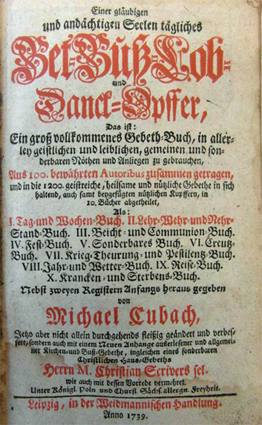 Einer gläubigen
und andächtigen Seelen tägliches
Bet-Buß-Lob-
und
Danck-Opffer,
Das ist:
Ein groß vollkommenes Gebeth-Buch, in aller-
ley geistlichen und leiblichen, gemeinen und son-
derbaren Nöthen und Anliegen zu gebrauchen,
Aus 100. bewährten Autoribus zusammen getragen,
und in die 1200. geistreiche, heilsame und nützliche Gebethe in sich
haltend, auch samt beygefügten nützlichen Kupffern, in
10. Bücher abgetheilet,
Als:
I. Tag-und Wochen-Buch. II. Lehr-Wehr-und Nehr-
Stand-Buch. III. Beicht-und Communion-Buch.
IV. Fest-Buch. V. Sonderbares Buch. VI. Creutz-
Buch. VII. Krieg-Theurung-und Pestilentz-Buch.
VIII. Jahr-und Wetter-Buch. IX. Reise-Buch.
X. Krancken-und Sterbens-Buch.
Nebst zweyen Registern Anfangs heraus gegeben
von
Michael Cubach,
Jetzo aber nicht allein durchgehends fleißig geändert und verbes-
sert, sondern auch mit einem Neuen Anhange auserlesener und allgemei-
ner Kirchen-und Buß-Gebethe, ingleichen eines sonderbaren
Christlichen Haus-Gebeths
Herrn M. Christian Scrivers sel.
wie auch mit dessen Vorrede vermehret.
Unter Königl. Poln. und Churfl. Sächs. allergn. Freyheit.
Leipzig, in der Weidmannischen Handlung.
Anno 1739.